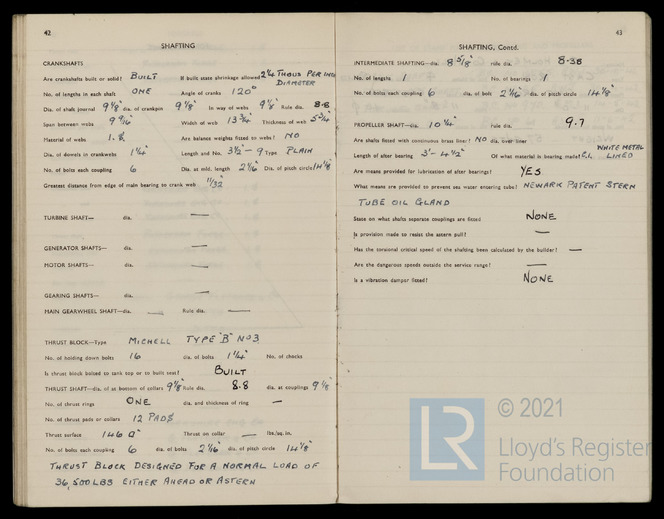 42
SHAFTING
CRANKSHAFTS
Are crankshafts built or solid? BUILT If built state shrinkage allowed 2¼ THOUS PER INCH DIAMETER
No. of lengths in each shaft ONE Angle of cranks 120°
Dia. of shaft journal 9⅛" dia. of crankpin 9⅛" In way of webs 9⅛" Rule dia. 8.8
Span between webs 9 9/16" Width of web 13¾" Thickness of web 5¾"
Material of webs I.S. Are balance weights fitted to webs? NO
Dia. of dowels in crankwebs 1¼" Length and No. 3½" - 9 Type PLAIN
No. of bolts each coupling 6 Dia. at mid. length 2 1/16" Dia. of pitch circle 14⅛"
Greatest distance from edge of main bearing to crank web 11/32"
TURBINE SHAFT— dia. —
GENERATOR SHAFTS— dia. —
MOTOR SHAFTS— dia. —
GEARING SHAFTS— dia. —
MAIN GEARWHEEL SHAFT—dia. — Rule dia. —
THRUST BLOCK—Type MICHELL TYPE "B" NO3
No. of holding down bolts 16 dia. of bolts 1¼" No. of chocks
Is thrust block bolted to tank top or to built seat? BUILT
THRUST SHAFT—dia. of at bottom of collars 9⅛" Rule dia. 8.8 dia. at couplings 9⅛"
No. of thrust rings ONE dia. and thickness of ring —
No. of thrust pads or collars 12 PADS
Thrust surface 146 □" Thrust on collar — lbs./sq. in.
No. of bolts each coupling 6 dia. of bolts 2 1/16" dia. of pitch circle 14⅛"
THRUST BLOCK DESIGNED FOR A NORMAL LOAD OF
36,500LBS EITHER AHEAD OR ASTERN
43
SHAFTING, Contd.
INTERMEDIATE SHAFTING—dia. 8 5/8" rule dia. 8.38
No. of lengths 1 No. of bearings 1
No. of bolts each coupling 6 dia. of bolt 2 1/16" dia. of pitch circle 14⅛"
PROPELLER SHAFT—dia. 10¼" rule dia. 9.7
Are shafts fitted with continuous brass liner? NO dia. over liner
Length of after bearing 3'- 4½" Of what material is bearing made? C.I. WHITE METAL LINED
Are means provided for lubrication of after bearings? YES
What means are provided to prevent sea water entering tube? NEWARK PATENT STERN
TUBE OIL GLAND
State on what shafts separate couplings are fitted NONE
Is provision made to resist the astern pull? —
Has the torsional critical speed of the shafting been calculated by the builder? —
Are the dangerous speeds outside the service range? —
Is a vibration damper fitted? NONE
LR
© 2021
Lloyd's Register
Foundation